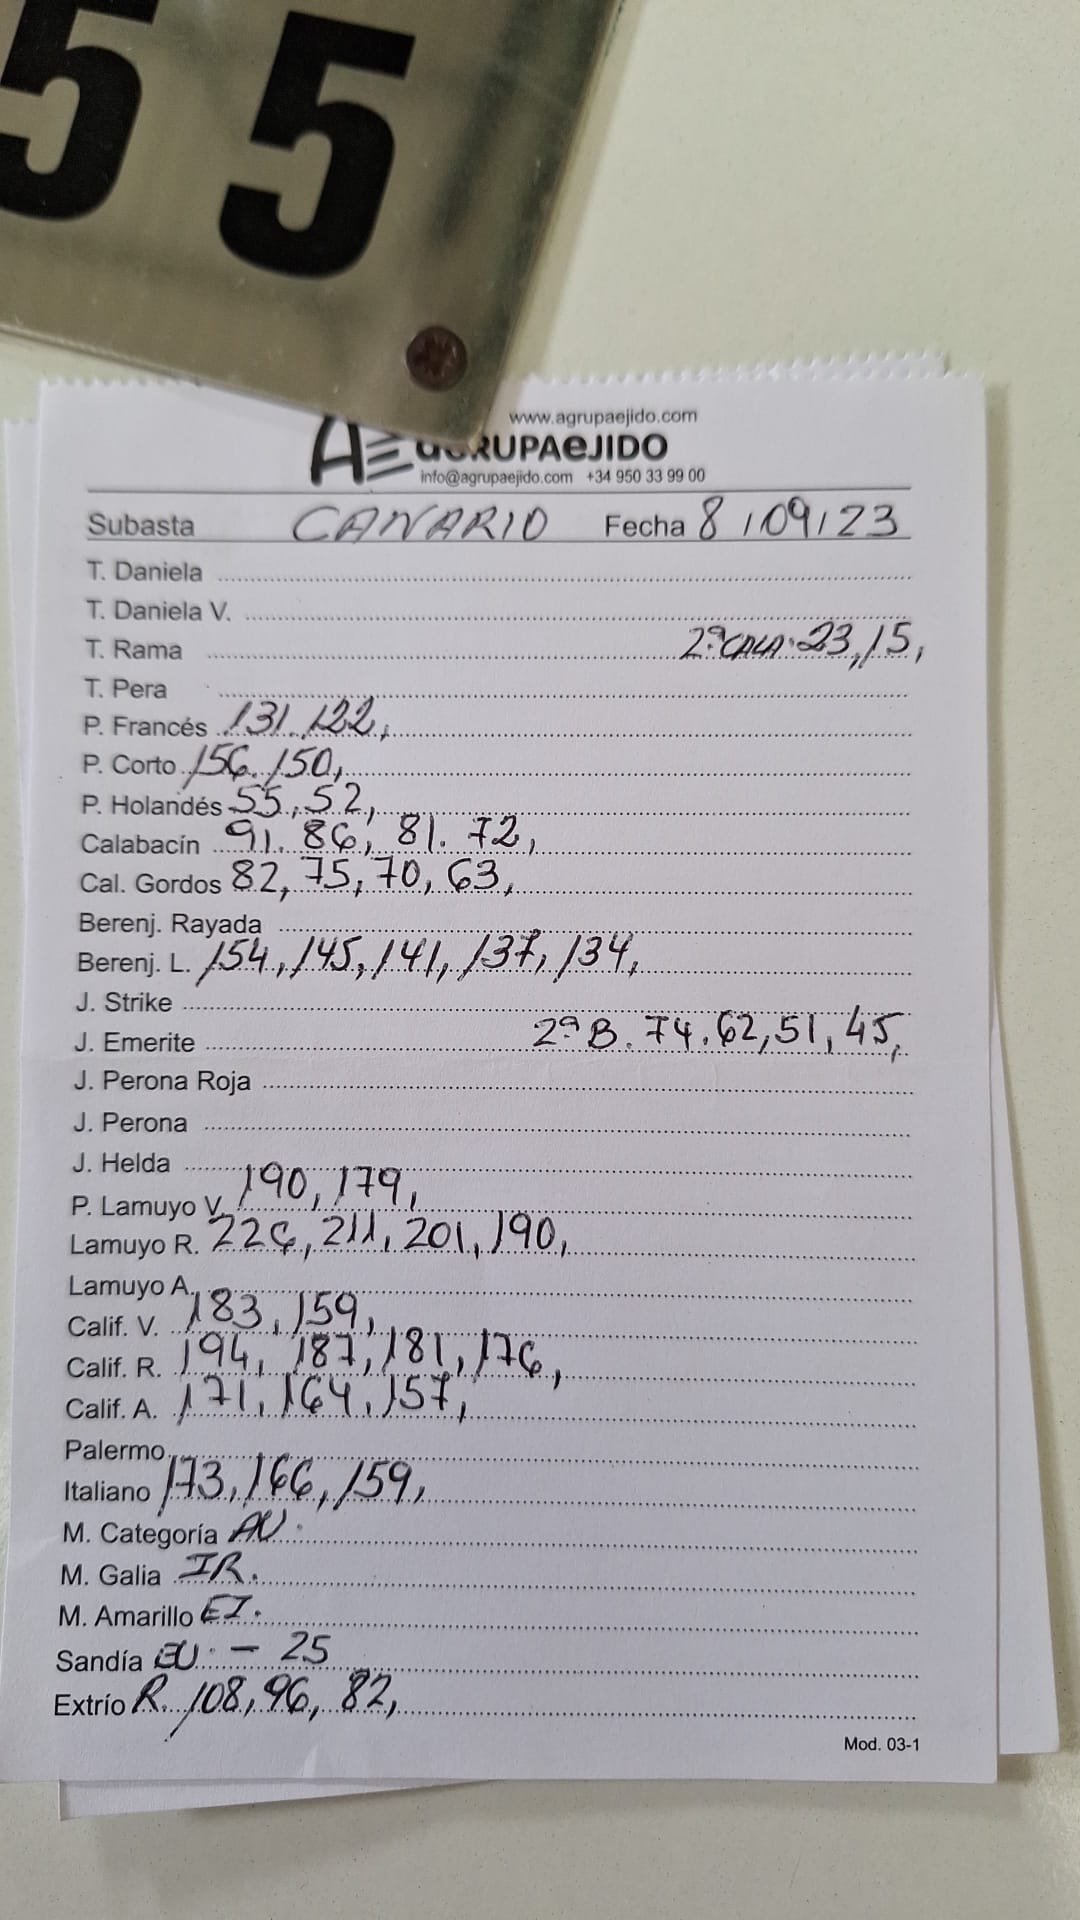 55
www.agrupaejido.com
AE aGRUPAeJIDO
info@agrupaejido.com +34 950 33 99 00
Subasta CANARIO Fecha 8/09/23
T. Daniela
T. Daniela V.
T. Rama 2ª CALA. 23, 15,
T. Pera
P. Francés 131. 122,
P. Corto 156. 150,
P. Holandés 55, 52,
Calabacín 91. 86, 81. 72,
Cal. Gordos 82, 75, 70, 63,
Berenj. Rayada
Berenj. L. 154, 145, 141, 137, 134,
J. Strike
J. Emerite 2ª B. 74. 62, 51, 45,
J. Perona Roja
J. Perona
J. Helda
P. Lamuyo V. 190, 179,
Lamuyo R. 226, 211, 201, 190,
Lamuyo A.
Calif. V. 183, 159,
Calif. R. 194, 187, 181, 176,
Calif. A. 171, 164, 157,
Palermo
Italiano 173, 166, 159,
M. Categoría AU.
M. Galia IR.
M. Amarillo EI.
Sandía EU. - 25
Extrío R. 108, 96, 82,
Mod. 03-1